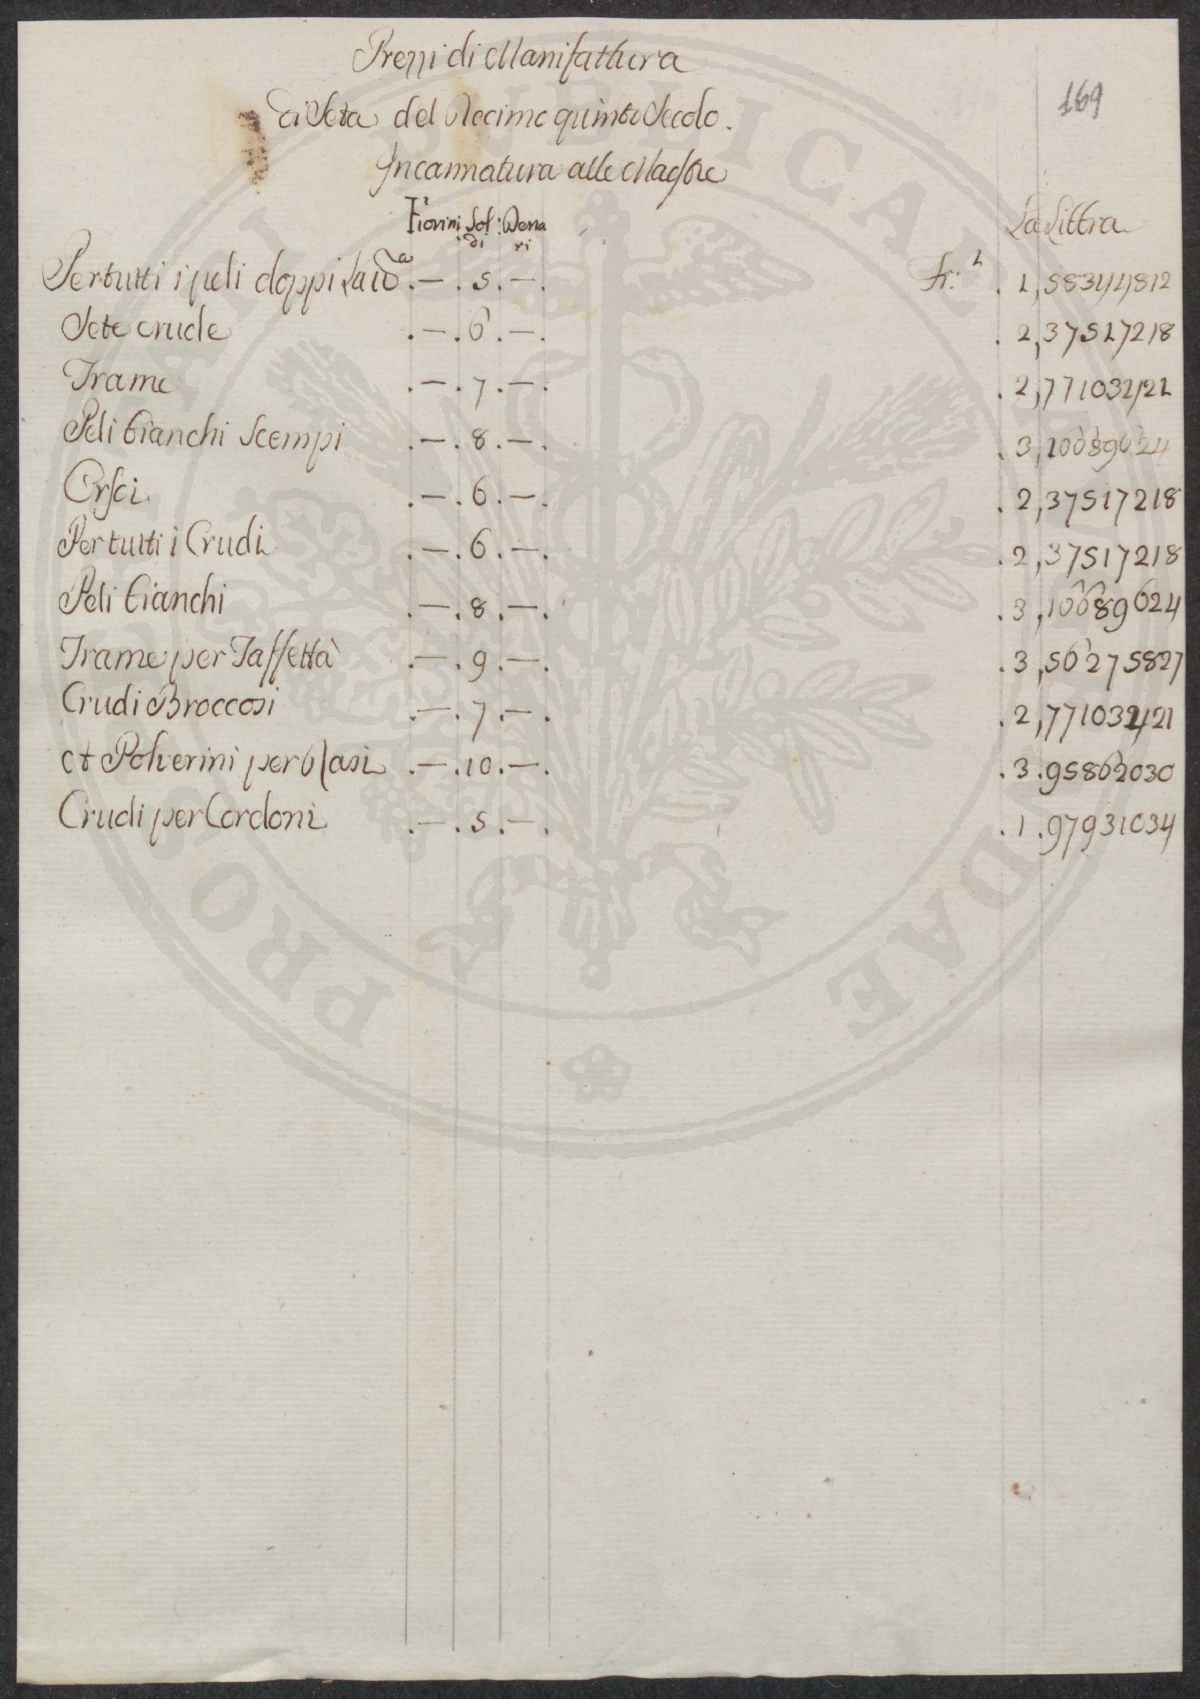 Prezzi di Manifattura
di Seta del Decimo quinto Secolo.
169
Incannatura alle Maestre
Fiorini Sol:di Denari La Libbra
Per tutti i peli doppi . — . 5 . — . Fr: L . 1,58344812
Sete crude . — . 6 . — . . 2,37517218
Trame . — . 7 . — . . 2,77103421
Peli bianchi Scempi . — . 8 . — . . 3,16689624
Orsoi . — . 6 . — . . 2,37517218
Per tutti i Crudi . — . 6 . — . . 2,37517218
Peli bianchi . — . 8 . — . . 3,16689624
Trame per Taffettà . — . 9 . — . . 3,56275827
Crudi Broccosi . — . 7 . — . . 2,77103421
et Polverini per Rasi . — . 10 . — . . 3.95862030
Crudi per Cordoni . — . 5 . — . . 1.97931034
PROSPERITATI PUBLICAE AUGENDAE